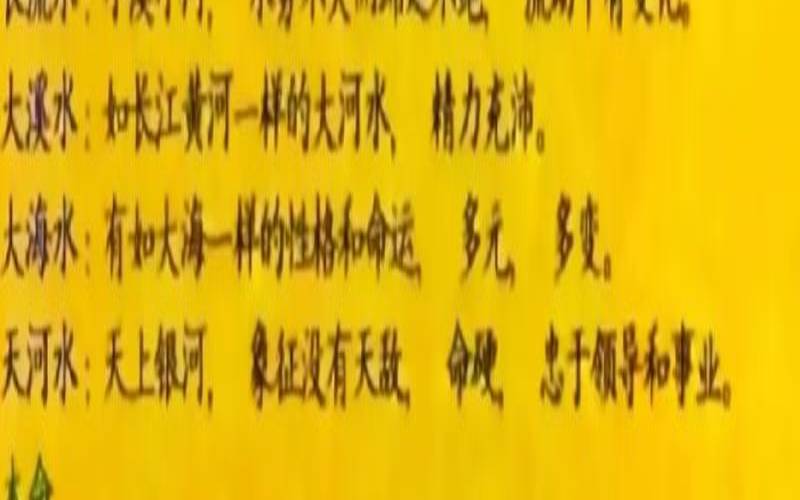 长流水：
大溪水：如长江黄河一样的大河水，精力充沛。
大海水：有如大海一样的性格和命运，多元，多变。
天河水：天上银河，象征没有天敌，命硬，忠于领导和事业。